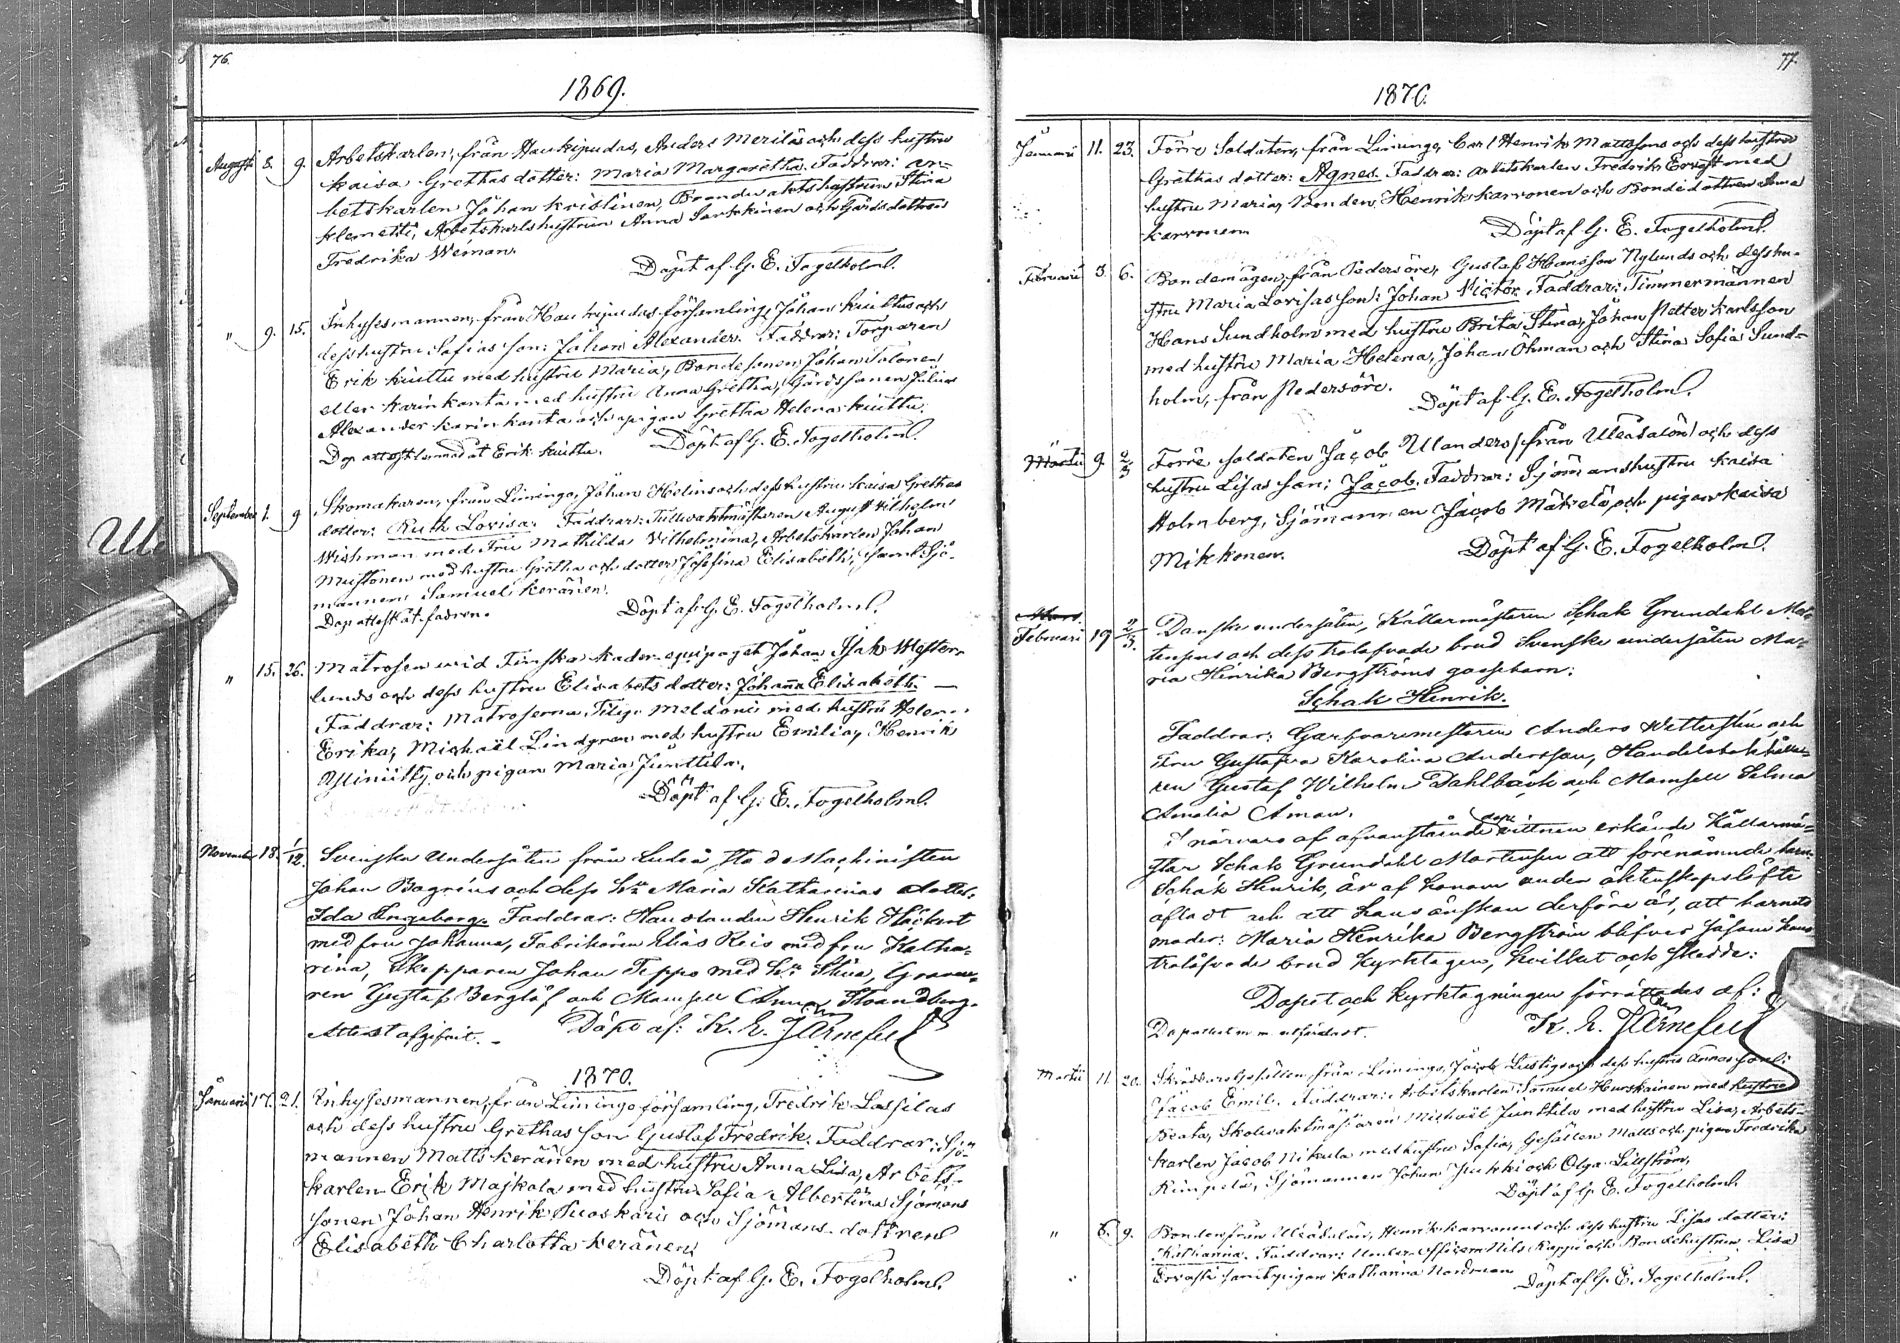 76.
1869.
Augusti 8. 9. Arbetskarlen, från Haukipudas, Anders Meriläs och dess hustru
Kaisa Grethas dotter: Maria Margaretha. Faddrar: ar-
betskarlen Johan Kristinen, Brandvaktshustrun Stina
Klemetti, Arbetskarlshustrun Anna Sarkkinen och Gårdsdottren
Fredrika Weiman.
Döpt af G. E. Fogelholm.
" 9. 15. Inhysesmannen, från Haukipudas församling, Johan Kiuttus och
dess hustru Sofias son: Johan Alexander. Faddrar: Torparen
Erik Kiuttu med hustru Maria, Bondesonen Johan Talonen
eller Karinkanta med hustru Anna Gretha, Gårdssonen Julius
Alexander Karinkanta och pigan Gretha Helena Kiuttu.
Dop attest lemnad åt Erik Kiuttu. Döpt af G. E. Fogelholm.
September 1. 9 Skomakaren, från Limingo, Johan Helins och dess hustru Kaisa Grethas
dotter: Ruth Lovisa. Faddrar: Tullvaktmästeren August Wilhelm
Wichman med Fru Mathilda Wilhelmina, Arbetskarlen Johan
Mustonen med hustru Gretha och dotter Josefina Elisabeth, samt Sjö-
mannen Samuel Keränen.
Dop attest åt fadren. Döpt af G. E. Fogelholm.
" 15. 26. Matrosen wid Finska kader-equipaget Johan Isak Wester-
lunds och dess hustru Elisabets dotter: Johanna Elisabeth. —
Faddrar: Matroserna Filip Meldoni med hustru
Erika, Michaël Lindgren med hustru Emilia, Henrik
Yliniitty och pigan Maria Junttila.
Döpt af G. E. Fogelholm.
November 18. 1/12. Svenska undersåten från Luleå Stad Machinisten
Johan Bagrins och dess h:u Maria Katharinas dotter:
Ida Ingeborg. Faddrar: Handlanden Henrik Häckert
med fru Johanna, Fabrikören Elias Reis med fru Katha-
rina, Skepparen Johan Teppo med h:u Stina, Graveu-
ren Gustaf Berglöf och Mamsell Anna Strandberg.
Attest afgifvit. Döpt af: K. E. Järnefelt
1870.
Januari 17. 21. Inhysesmannen, från Limingo församling, Fredrik Lassilas
och dess hustru Grethas son Gustaf Fredrik. Faddrar: Sjö-
mannen Matts Keränen med hustru Anna Lisa, Arbets-
karlen Erik Majkala med hustru Sofia Albertina Sjömans
sonen Johan Henrik Ruoskari och Sjömans-dottren
Elisabeth Charlotta Keränen.
Döpt af G. E. Fogelholm.
77.
1870.
Januari 11. 23. Förre Soldaten, från Limingo, Carl Henrik Mattssons och dess hustru
Grethas dotter: Agnes. Faddrar: arbetskarlen Fredrik Ervast med
hustru Maria, Bonden Henrik Karvonen och Bondedottren Anna
Karvonen
Döpt af G. E. Fogelholm.
Februari 3. 6. Bondemågen, från Pedersöre, Gustaf Hansson Nylunds och dess hu-
stru Maria Lovisas son: Johan Victor. Faddrar: Timmermännen
Hans Sundholm med hustru Brita Stina, Johan Petter Karlsson
med hustru Maria Helena, Johan Öhman och Stina Sofia Sund-
holm, från Pedersöre.
Döpt af G. E. Fogelholm.
Martii 9. 2/3 Förre soldaten Jacob Ulanders (från Uleåsalon) och dess
hustru Lisas son: Jacob. Faddrar: Sjömanshustru Kaisa
Holmberg, Sjömannen Jacob Mäkelä och pigan Kaisa
Mikkonen.
Döpt af G. E. Fogelholm.
Mars.
Februari 19 2/3. Danske undersåten, Källarmästeren Schak Grundahl Mar-
tensens och dess trolofvade brud Svenske undersåten Ma-
ria Henrika Bergströms gossebarn:
Schak Henrik.
Faddrar: Garfvaremesteren Anders Wetterstén och
Fru Gustafva Karolina Andersson, Handelsbokhålla-
ren Gustaf Wilhelm Dahlbäck och Mamsell Selma
Amalia Åman.
I närvaro af ofvanstående dop vittnen erkände Källarmä-
star Schak Grundahl Martensen att förenämnde barn
Schak Henrik, är af honom under äktenskapslöfte
afladt och att hans önskan derföre är, att barnets
moder: Maria Henrika Bergström blifver såsom hans
trolofvade brud kyrktagen, hvilket och skedde.
Dopet och kyrktagningen förrättades af:
Dopattest m m utfärdadt. K. E. Järnefelt
Martii 11 20. Skräddaregesällen från Limingo, Jacob Lustigs och dess hustru Annas son:
Jacob Emil. Faddrar: Arbetskarlen Samuel Hurskainen med hustru
Beata, Skolvaktmästaren Michaël Junttila med hustru Lisa, Arbets-
karlen Jacob Nikula med hustru Sofia, Gesällen Matts och pigan Fredrika
Kimpelä, Sjömannen Johan Jukki och Olga Lillström,
Döpt af G. E. Fogelholm.
" 6. 9. Bonden från Uleåsalon, Henrik Karvonens och dess hustru Lisas dotter:
Katharina. Faddrar: Under-officern Nils Kappi och Bondehustrun Lisa
Ervasti samt pigan Katharina Nordman
Döpt af G. E. Fogelholm.